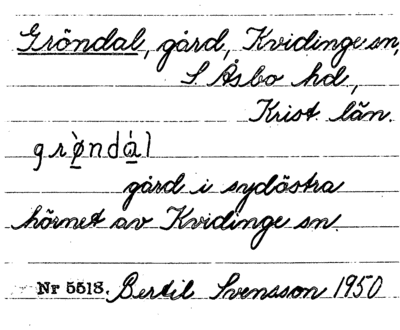 Gröndal, gård, Kvidinge sn,
S. Åsbo hd,
Krist. län.
grø̀ndá̠l
gård i sydöstra
hörnet av Kvidinge sn.
Nr 5518. Bertil Svensson 1950